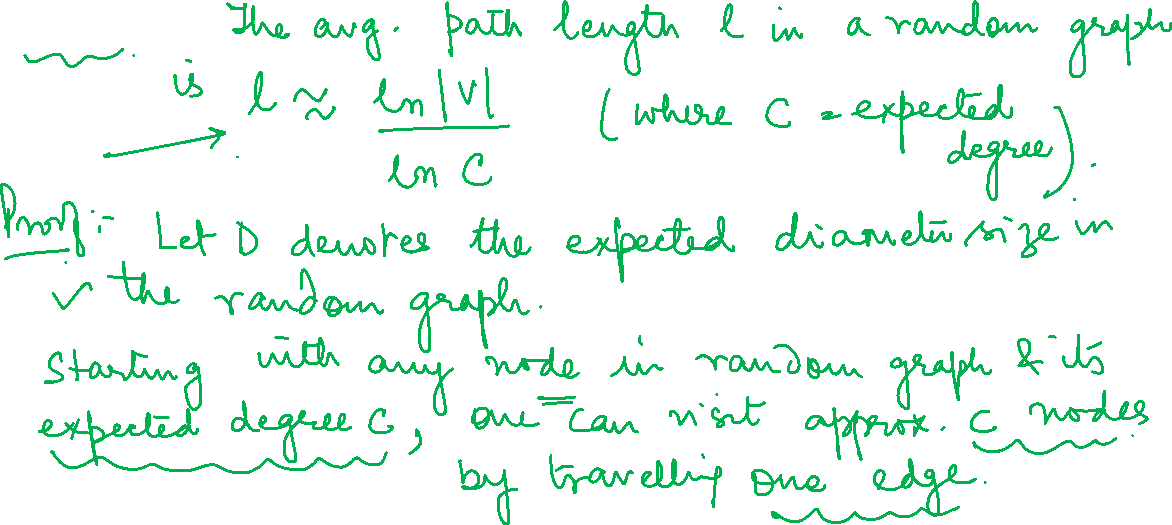 The avg. path length l in a random graph
is l ≈ ln|V| / ln C (where C = expected degree).
Proof:- Let D denotes the expected diameter size in
the random graph.
Starting with any node in random graph & its
expected degree C, one can visit approx. C nodes
by travelling one edge.